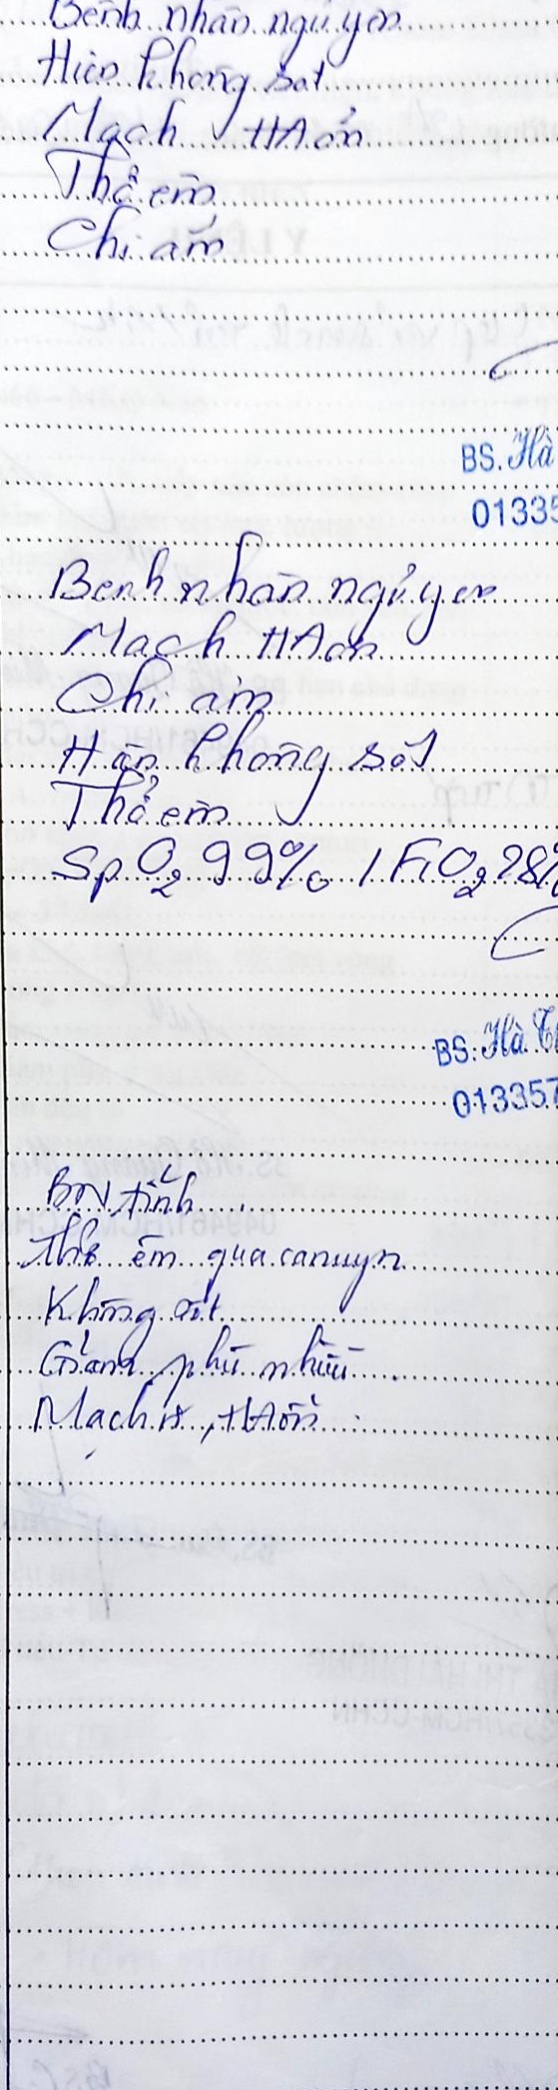 Bệnh nhân ngủ yên
Hiện không sốt
Mạch HA ổn
Thở êm
Chi ấm
BS. Hà
01335
Bệnh nhân ngủ yên
Mạch HA ổn
Chi ấm
Hiện không sốt
Thở êm
SpO2 99% / FiO2 28%
BS. Hà
013357
BN tỉnh
Thở êm qua canuyn
Không sốt
Giảm phù nhiều
Mạch, HA ổn